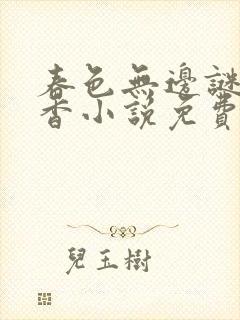 春色無邊謎
香小說免費
兒玉樹